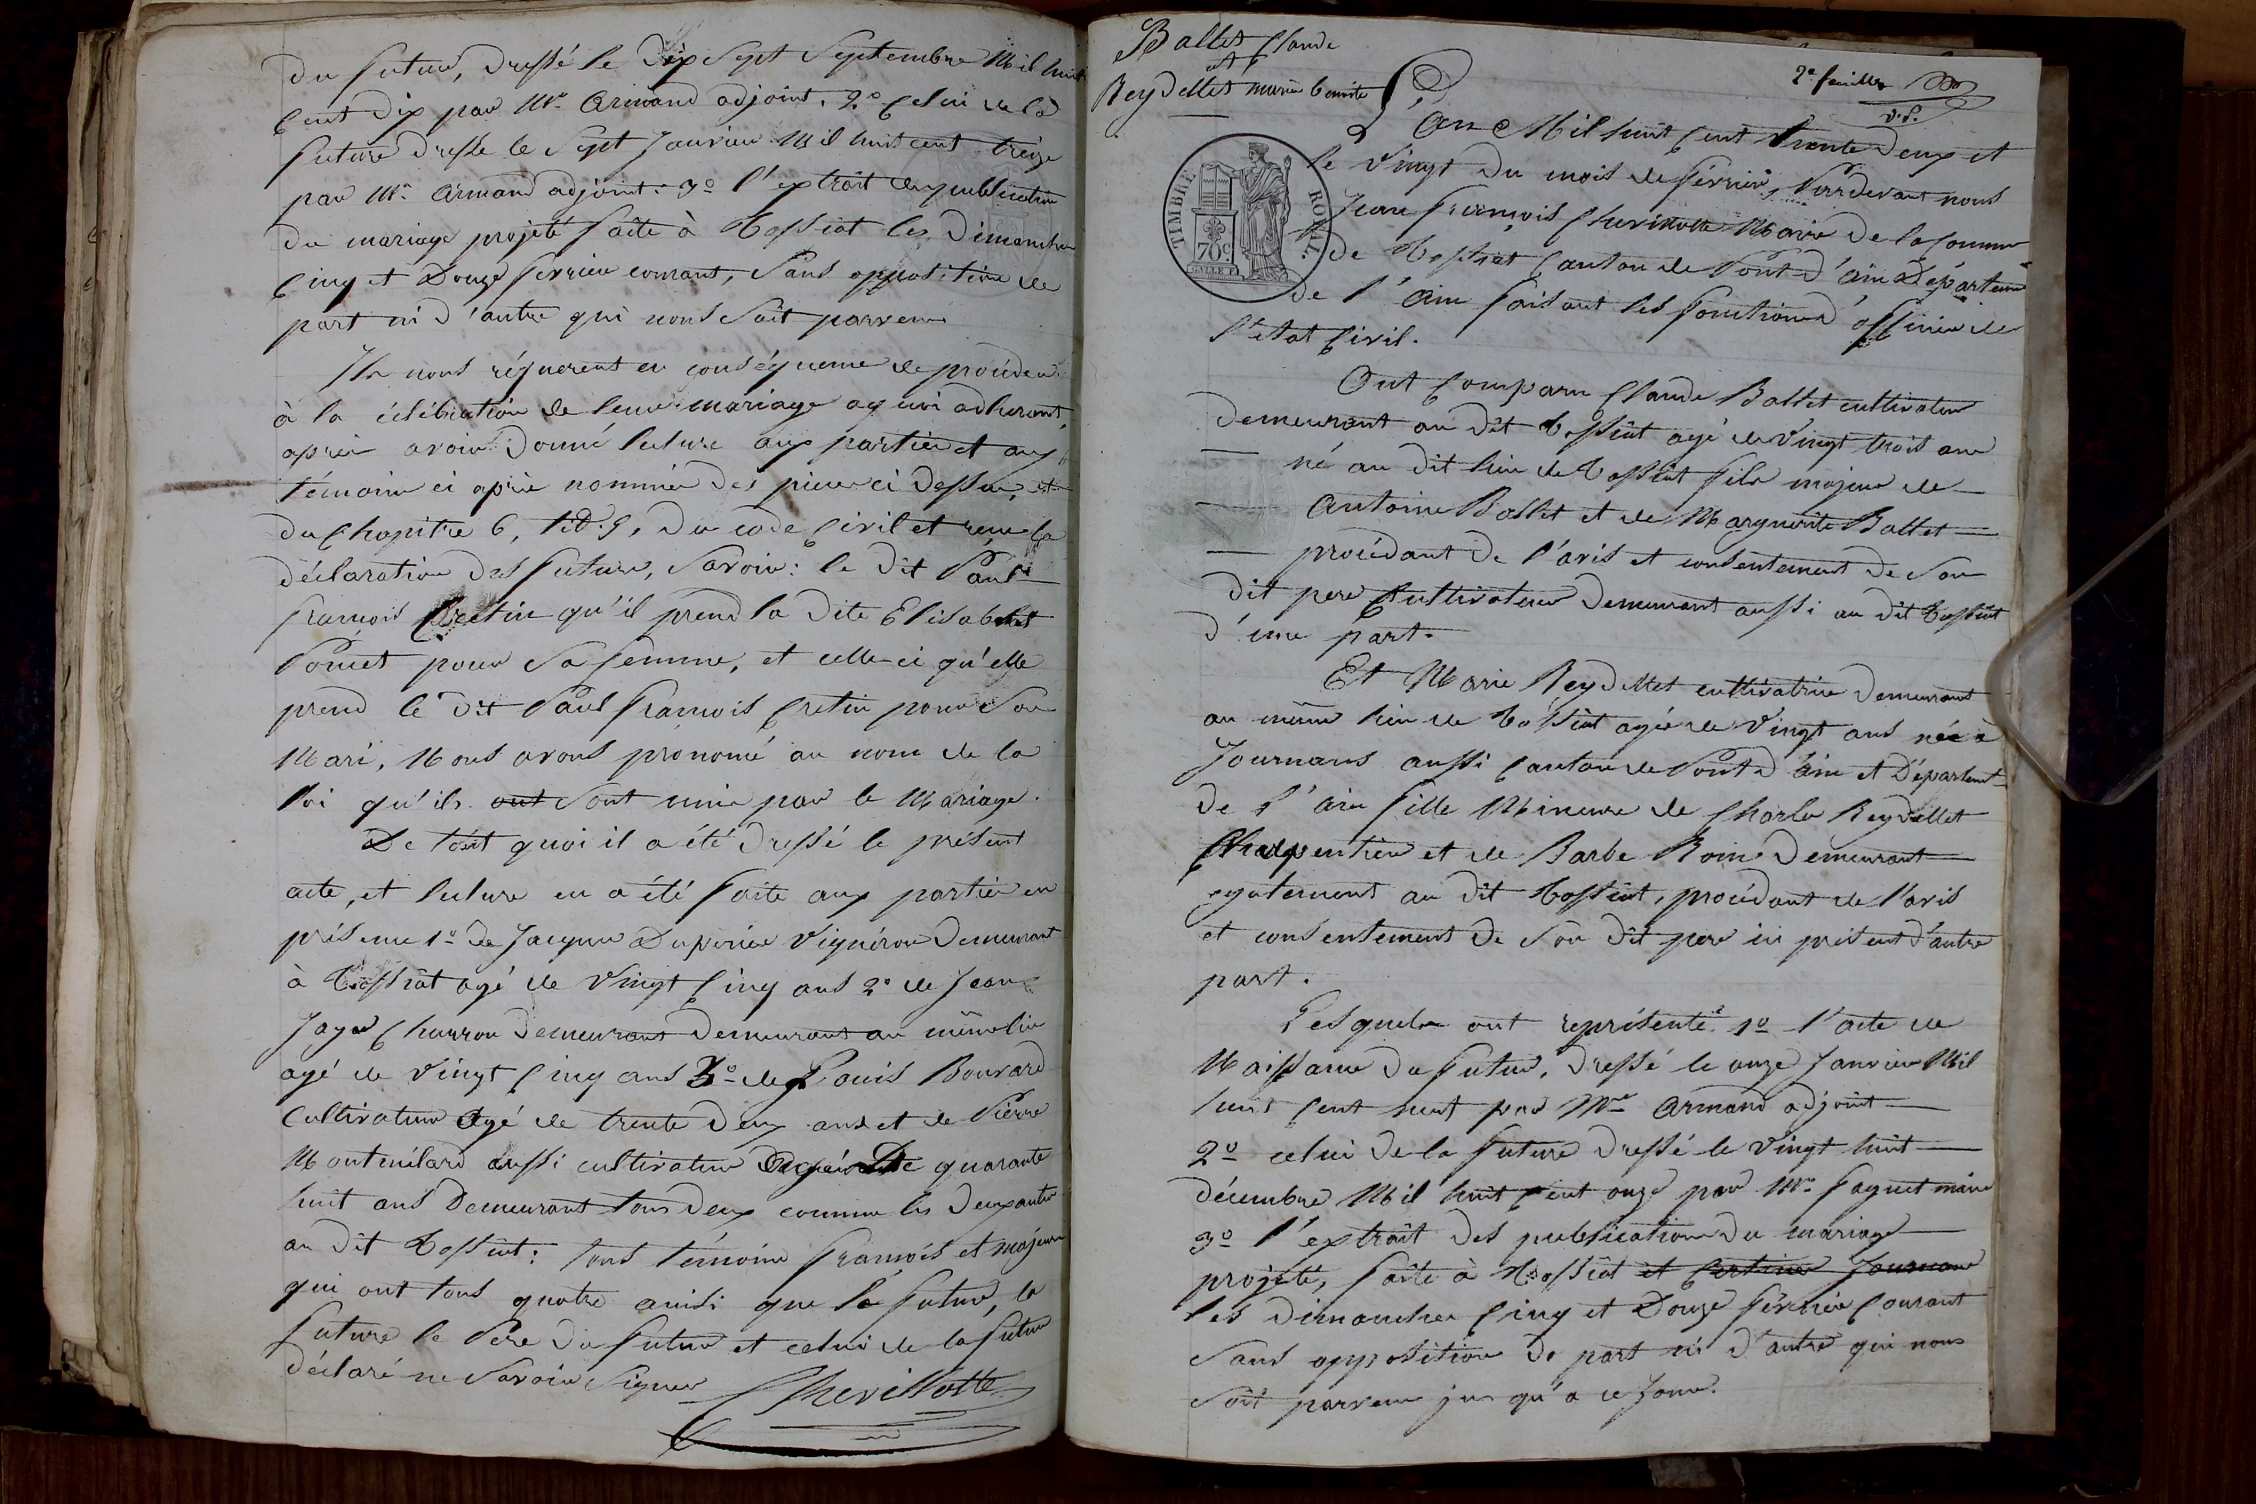 du futur, dressé le dix sept Septembre Mil huit
cent dix par Mr. Armand adjoint. 2º celui de la
future dressé le Sept Janvier Mil huit cent treize
par Mr. Armand adjoint. 3º l'extrait des publication
du mariage projeté faite à Tossiat les Dimanches
cinq et Douze février courant, sans opposition de
part ni d'autre qui nous soit parvenu
Ils nous réquerent en conséquence de procéder
à la célébration de leur mariage a quoi adherant,
après avoir donné lecture aux parties et aux
témoins ci après nommés des pieces ci dessus, et
du chapitre 6, tit. 5, du code civil et recu la
déclaration des futurs, savoir: le dit Paul
françois Cretin qu'il prend la dite Elisabeth
Poncet pour sa femme, et celle-ci qu'elle
prend le dit Paul françois Cretin pour son
Mari, Nous avons prononcé au nom de la
loi qu'ils ont sont unis par le Mariage.
De tout quoi il a été dressé le présent
acte, et lecture en a été faite aux parties en
présence 1º de Jacques Duperier vigneron demeurant
à Tossiat agé de vingt cinq ans 2º de Jean
Jayr charron demeurant demeurant au même lieu
agé de vingt cinq ans 3º de Louis Bouvard
cultivateur agé de trente deux ans et de Pierre
Montmilard aussi cultivateur agé de quarante
huit ans demeurant tous deux comme les deux autres
au dit Tossiat: tous témoins français et majeurs
qui ont tous quatre ainsi que le futur, la
future le Père du futur et celui de la future
déclaré ne savoir signer Chevillotte
Ballet Claude
et
Reydellet marie benoite
2e. feuillet
L'an Mil huit cent trente deux et
le vingt du mois de février, Pardevant nous
Jean françois Chevillotte Maire de la commune
de Tossiat canton de Pont d'ain Département
de l'Ain faisant les fonctions d'officier de
l'état civil.
TIMBRE ROYAL.
70 c
Ont comparu Claude Ballet cultivateur
demeurant au dit Tossiat agé de vingt trois ans
né au dit lieu de Tossiat fils majeur de
Antoine Ballet et de Marguerite Ballet
procédant de l'avis et consentement de son
dit pere Cultivateur demeurant aussi au dit Tossiat
d'une part.
Et Marie Reydellet cultivatrice demeurant
au même lieu de Tossiat agée de vingt ans née à
Journans aussi canton de Pont d'ain et Départemt
de l'Ain fille Mineure de Charles Reydellet
Charpentier et de Barbe Roin demeurant
egalement au dit Tossiat, procédant de l'avis
et consentement de son dit pere ici présent d'autre
part.
Lesquels ont représenté 1º l'acte de
Naissance du futur, dressé le onze Janvier Mil
huit cent neuf par Mr. Armand adjoint
2º celui de la future dressé le vingt huit
décembre Mil huit cent onze par Mr. faguet maire
3º l'extrait des publications du mariage
projeté, faite à Tossiat et Journans
les dimanches cinq et Douze février Courant
sans opposition de part ni d'autre qui nous
soit parvenu jus qu'a ce jour.